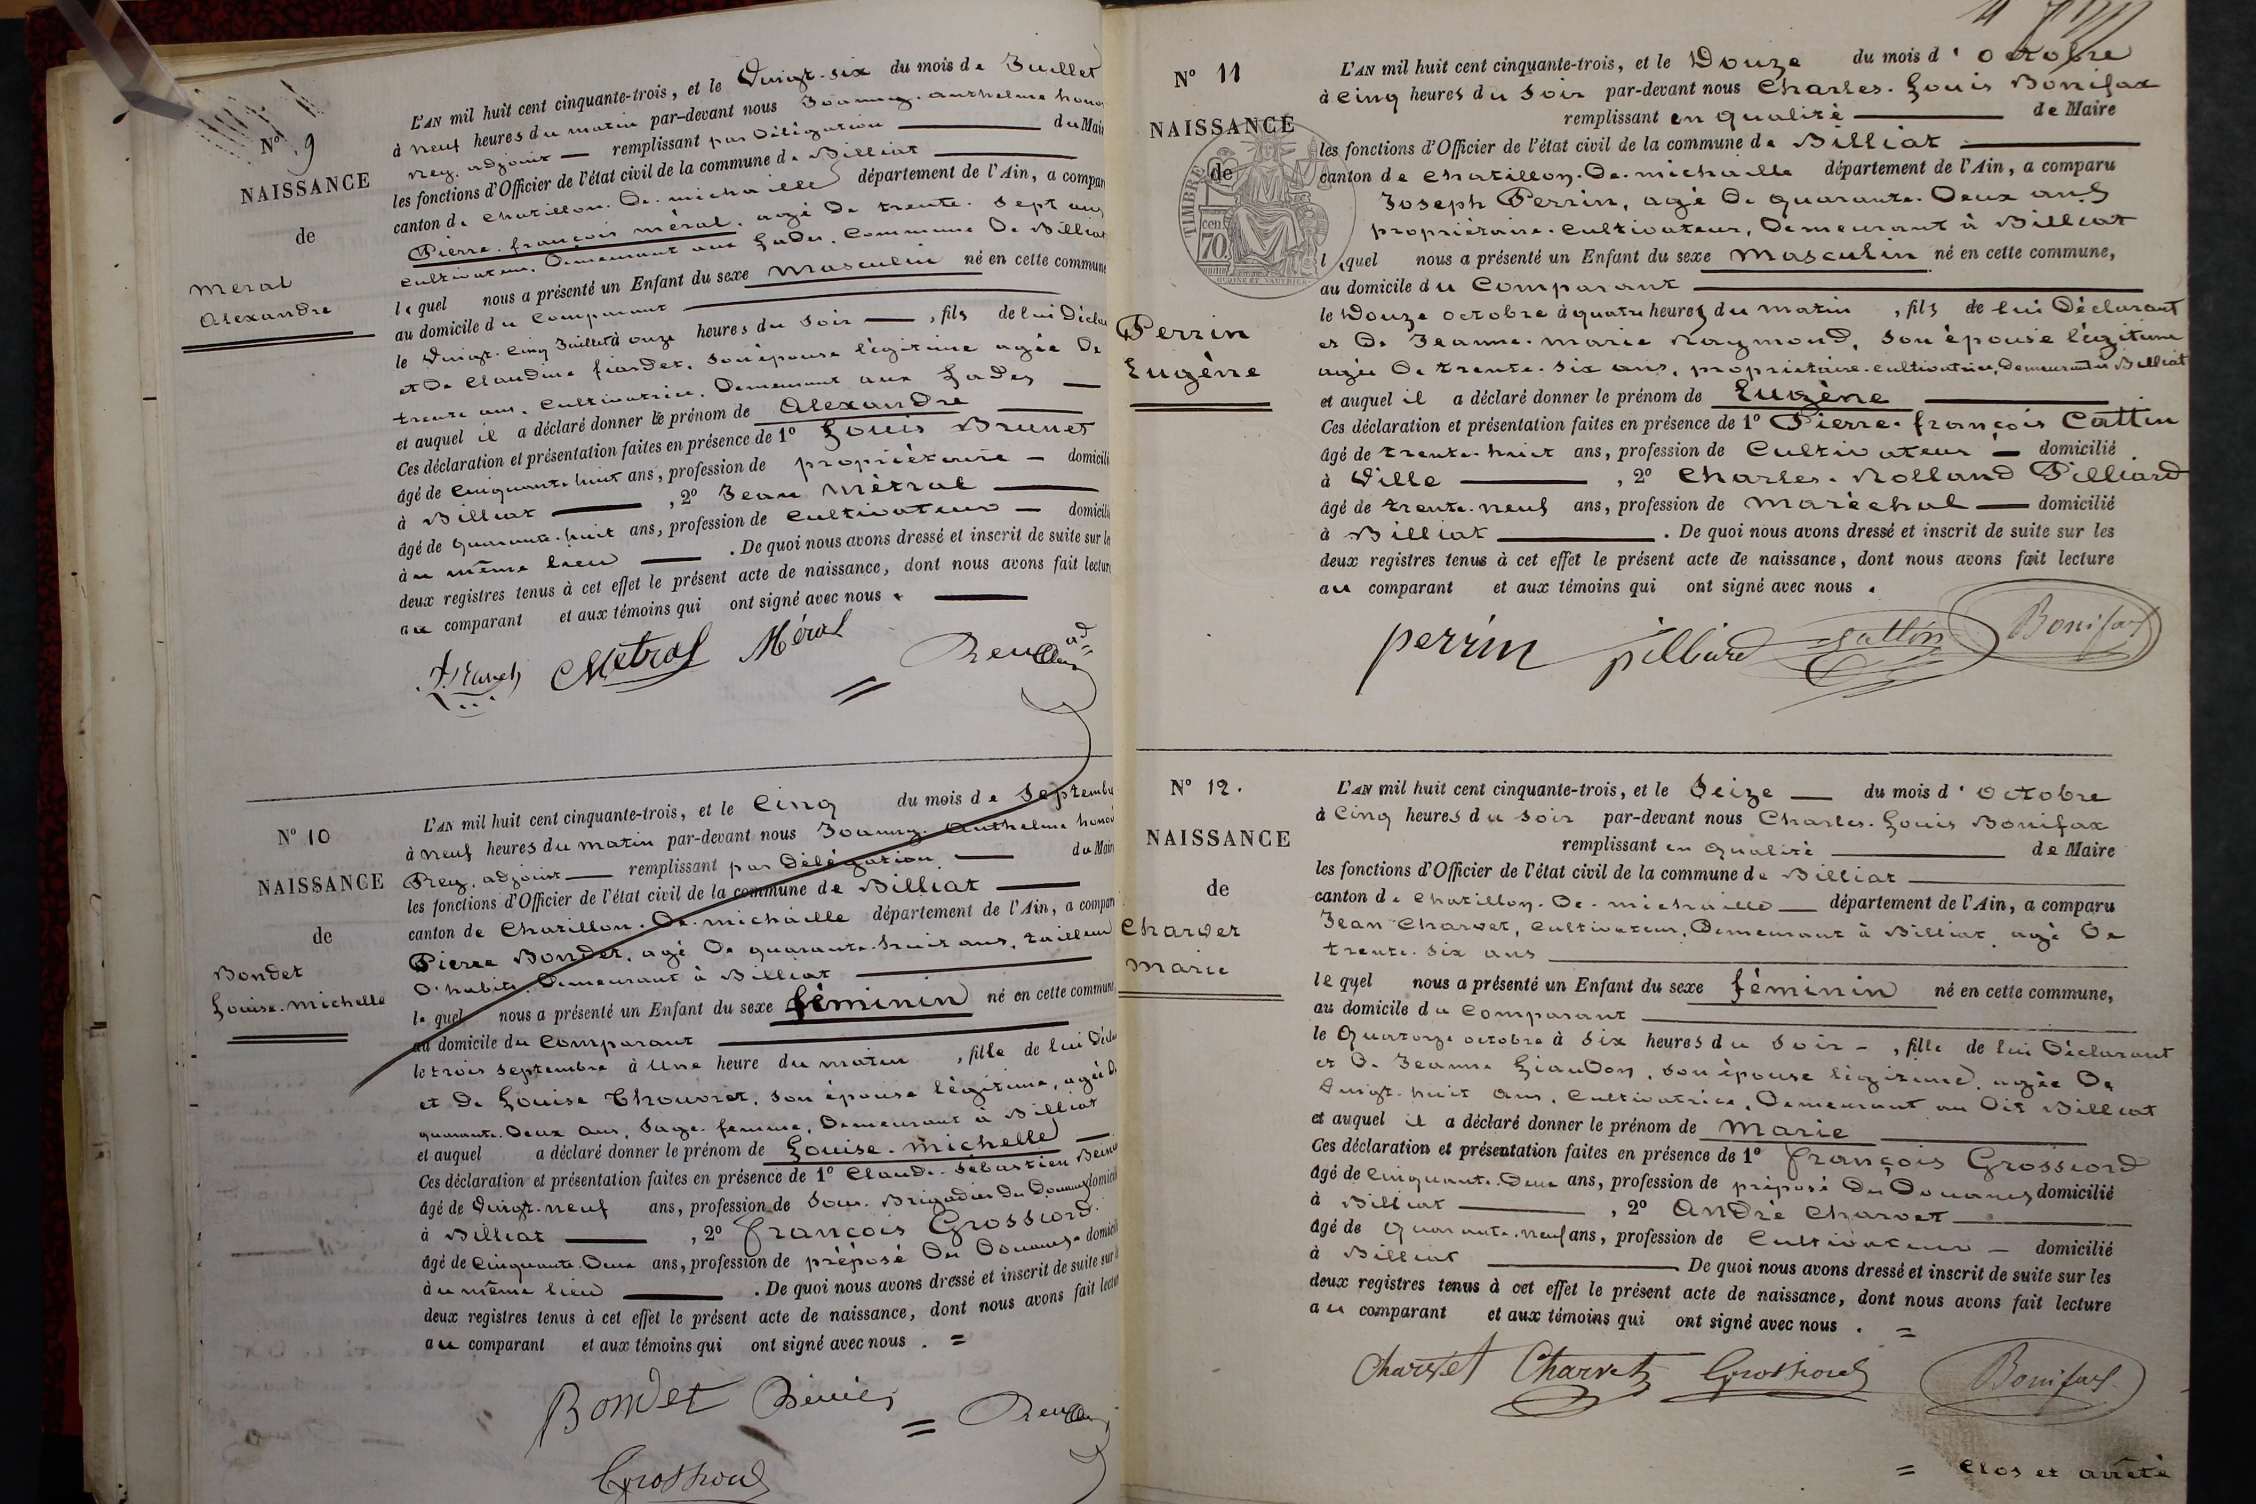 N° 9
NAISSANCE
de
Méral
Alexandre
L'AN mil huit cent cinquante-trois, et le Vingt-six du mois de Juillet
à neuf heures du matin par-devant nous Joanny-Anthelme
Rey, adjoint — remplissant par Délégation — du Mai
les fonctions d'Officier de l'état civil de la commune de Billiat —
canton de Chatillon-De-michaille département de l'Ain, a compar
Pierre-françois méral, agé De trente-Sept ans
cultivateur, Demeurant aux Commune De Billiat
lequel nous a présenté un Enfant du sexe Masculin né en cette commune
au domicile du Comparant —
le Vingt-Cinq Juillet à onze heures du Soir —, fils de lui Décla
et De Claudine son épouse légitime agée De
trente ans, Cultivatrice, Demeurant aux —
et auquel il a déclaré donner le prénom de Alexandre —
Ces déclaration et présentation faites en présence de 1° Louis Brunet
âgé de Cinquante-huit ans, profession de propriétaire — domicili
à Billiat —, 2° Jean Métral —
âgé de quarante-huit ans, profession de Cultivateur — domicili
à u même lieu — . De quoi nous avons dressé et inscrit de suite sur le
deux registres tenus à cet effet le présent acte de naissance, dont nous avons fait lectur
au comparant et aux témoins qui ont signé avec nous . —
Métral Méral
N° 10
NAISSANCE
de
Bondet
Louise-Michelle
L'AN mil huit cent cinquante-trois, et le Cinq du mois de Septemb
à neuf heures du matin par-devant nous Joanny-Anthelme
Rey, adjoint — remplissant par Délégation — du Mair
les fonctions d'Officier de l'état civil de la commune de Billiat —
canton de Chatillon-De-michaille département de l'Ain, a compar
Pierre Bondet, agé De quarante-huit ans, tailleur
D'habits, Demeurant à Billiat —
lequel nous a présenté un Enfant du sexe féminin né en cette commune
au domicile du Comparant —
le trois Septembre à Une heure du matin , fille de lui Décla
et De Louise son épouse légitime, agée De
quarante-Deux ans, Sage-femme, Demeurant à Billiat
et auquel a déclaré donner le prénom de Louise-Michelle —
Ces déclaration et présentation faites en présence de 1° Claude-Sébastien
âgé de Vingt-neuf ans, profession de Sous-Brigadier Des Douanes domicili
à Billiat —, 2° françois Grossiord
âgé de Cinquante-Deux ans, profession de préposé Des Douanes domicili
à u même lieu — . De quoi nous avons dressé et inscrit de suite sur
deux registres tenus à cet effet le présent acte de naissance, dont nous avons fait lectur
au comparant et aux témoins qui ont signé avec nous . =
Bondet
Grossiord
N° 11
NAISSANCE
de
TIMBRE
70 cen
Perrin
Eugène
L'AN mil huit cent cinquante-trois, et le Douze du mois d'octobre
à Cinq heures du Soir par-devant nous Charles-Louis Bonifax
remplissant en qualité — de Maire
les fonctions d'Officier de l'état civil de la commune de Billiat —
canton de Chatillon-De-michaille département de l'Ain, a comparu
Joseph Perrin, agé De quarante-Deux ans
propriétaire-Cultivateur, Demeurant à Billiat
lequel nous a présenté un Enfant du sexe Masculin né en cette commune,
au domicile du Comparant —
le Douze octobre à quatre heures du matin , fils de lui Déclarant
et De Jeanne-marie Raymond, son épouse légitime
agée De trente-six ans, propriétaire-cultivatrice, Demeurant à Billiat
et auquel il a déclaré donner le prénom de Eugène —
Ces déclaration et présentation faites en présence de 1° Pierre-françois Cattin
âgé de trente-huit ans, profession de Cultivateur — domicilié
à Ville —, 2° Charles-Rolland Pilliard
âgé de trente-neuf ans, profession de maréchal — domicilié
à Billiat — . De quoi nous avons dressé et inscrit de suite sur les
deux registres tenus à cet effet le présent acte de naissance, dont nous avons fait lecture
au comparant et aux témoins qui ont signé avec nous .
perrin pilliard Cattin Bonifax
N° 12.
NAISSANCE
de
Charvet
Marie
L'AN mil huit cent cinquante-trois, et le Seize — du mois d'octobre
à Cinq heures du Soir par-devant nous Charles-Louis Bonifax
remplissant en qualité — de Maire
les fonctions d'Officier de l'état civil de la commune de Billiat —
canton de Chatillon-De-michaille — département de l'Ain, a comparu
Jean Charvet, Cultivateur, Demeurant à Billiat, agé De
trente-six ans —
lequel nous a présenté un Enfant du sexe féminin né en cette commune,
au domicile du Comparant —
le Quatorze octobre à Six heures du Soir —, fille de lui Déclarant
et De Jeanne son épouse légitime, agée De
Vingt-huit ans, Cultivatrice, Demeurant au Dit Billiat
et auquel il a déclaré donner le prénom de Marie —
Ces déclaration et présentation faites en présence de 1° françois Grossiord
âgé de Cinquante-Deux ans, profession de préposé Des Douanes domicilié
à Billiat —, 2° André Charvet —
âgé de Quarante-neuf ans, profession de Cultivateur — domicilié
à Billiat — De quoi nous avons dressé et inscrit de suite sur les
deux registres tenus à cet effet le présent acte de naissance, dont nous avons fait lecture
au comparant et aux témoins qui ont signé avec nous . =
Charvet Charvet Grossiord Bonifax
= Clos et arrêté